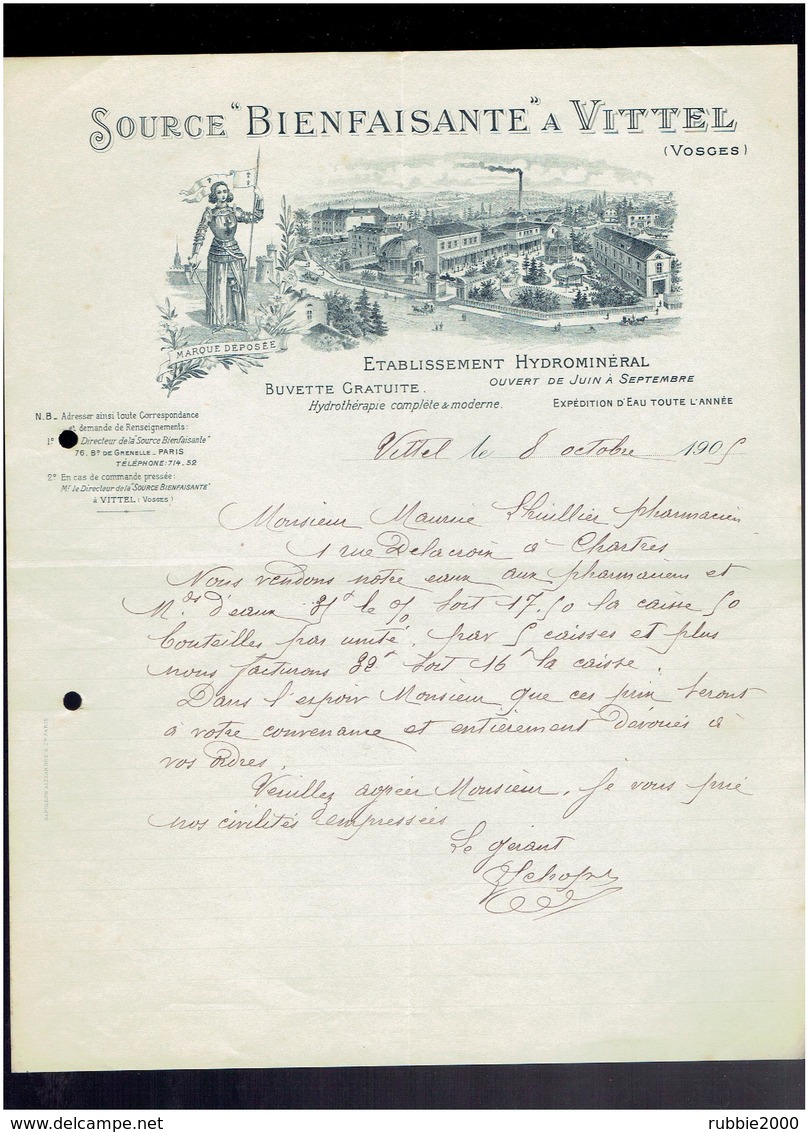 SOURCE "BIENFAISANTE" A VITTEL
(VOSGES)
MARQUE DÉPOSÉE
ETABLISSEMENT HYDROMINÉRAL
OUVERT DE JUIN À SEPTEMBRE
BUVETTE GRATUITE.
Hydrothérapie complète & moderne.
EXPÉDITION D'EAU TOUTE L'ANNÉE
N.B_ Adresser ainsi toute Correspondance
et demande de Renseignements:
1° Directeur de la "Source Bienfaisante"
76, Bd DE GRENELLE_PARIS
TÉLÉPHONE: 714.52
2° En cas de commande pressée:
Mr le Directeur de la "SOURCE BIENFAISANTE"
à VITTEL (VOSGES)
Vittel le 8 octobre 1905
Monsieur Maurice Lhuillier pharmacien
1 rue Delacroix à Chartres
Nous vendons notre eaux aux pharmaciens et
Mds d'eaux 35f le % soit 17.50 la caisse 50
bouteilles par unité, par 5 caisses et plus
nous facturons 32f soit 16f la caisse.
Dans l'espoir Monsieur que ces prix seront
à votre convenance et entièrement dévoués à
vos ordres.
Veuillez agréer Monsieur, je vous prie
nos civilités empressées
Le gérant
rubbie2000